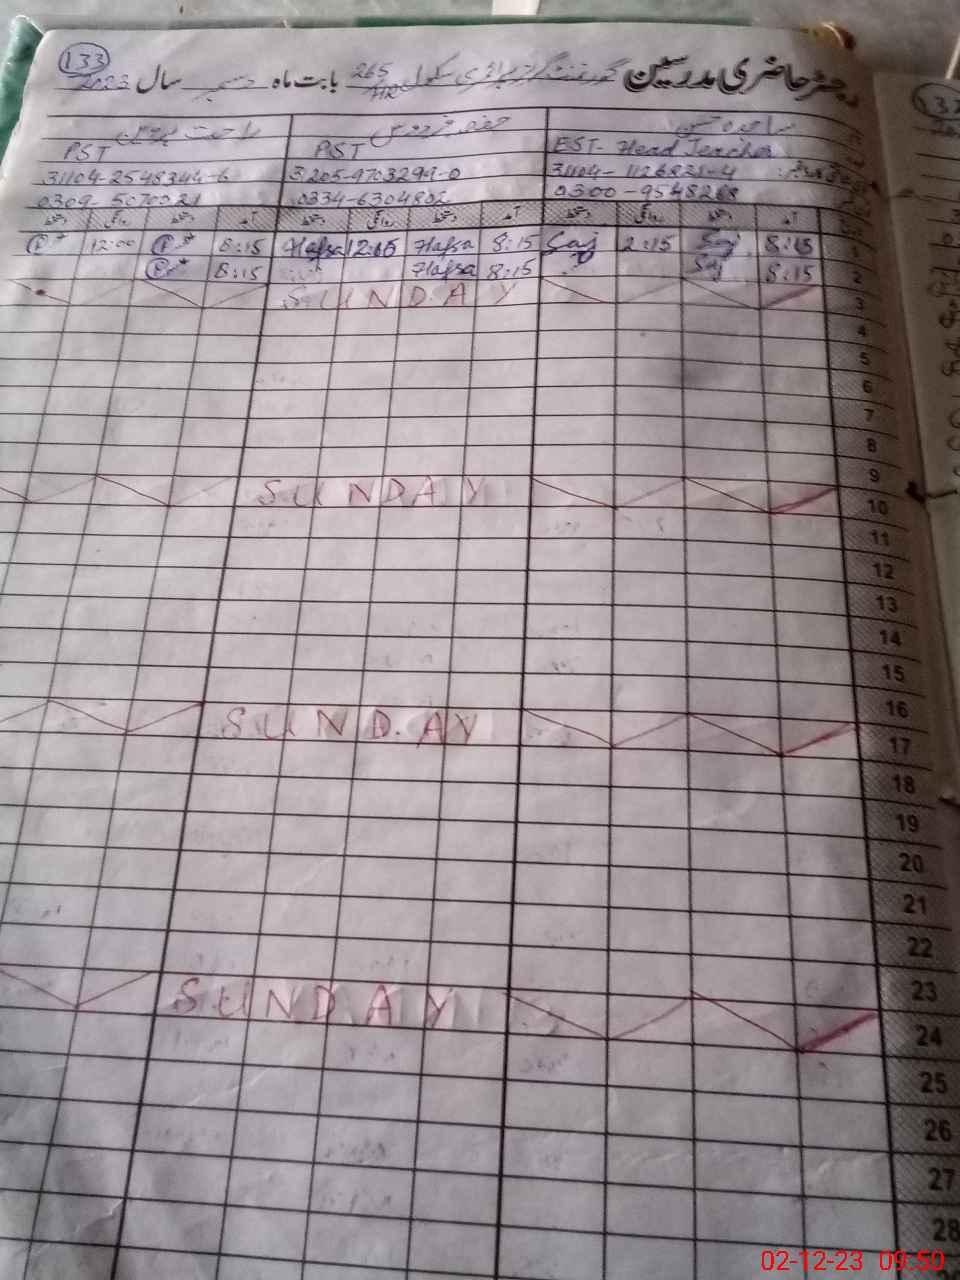 133
رجسٹر حاضری مدرسین گورنمنٹ گرلز پرائمری سکول 265 HR بابت ماہ دسمبر سال 2023
ساجدہ حفصہ فردوس راحت پروین
PST PST EST- Head Teacher
31104-2548344-6 31205-9703299-0 31104-1126825-4
0309-5070921 0334-6304802 0300-9548268
دستخط روانگی دستخط آمد دستخط روانگی دستخط آمد دستخط روانگی دستخط آمد
12:00 8:15 Hafsa 12:05 Hafsa 8:15 Saj 2:15 Saj 8:15 1
8:15 Hafsa 8:15 Saj 8:15 2
SUNDAY 3
4
5
6
7
8
9
SUNDAY 10
11
12
13
14
15
16
SUNDAY 17
18
19
20
21
22
23
SUNDAY 24
25
26
27
28
02-12-23 09:50